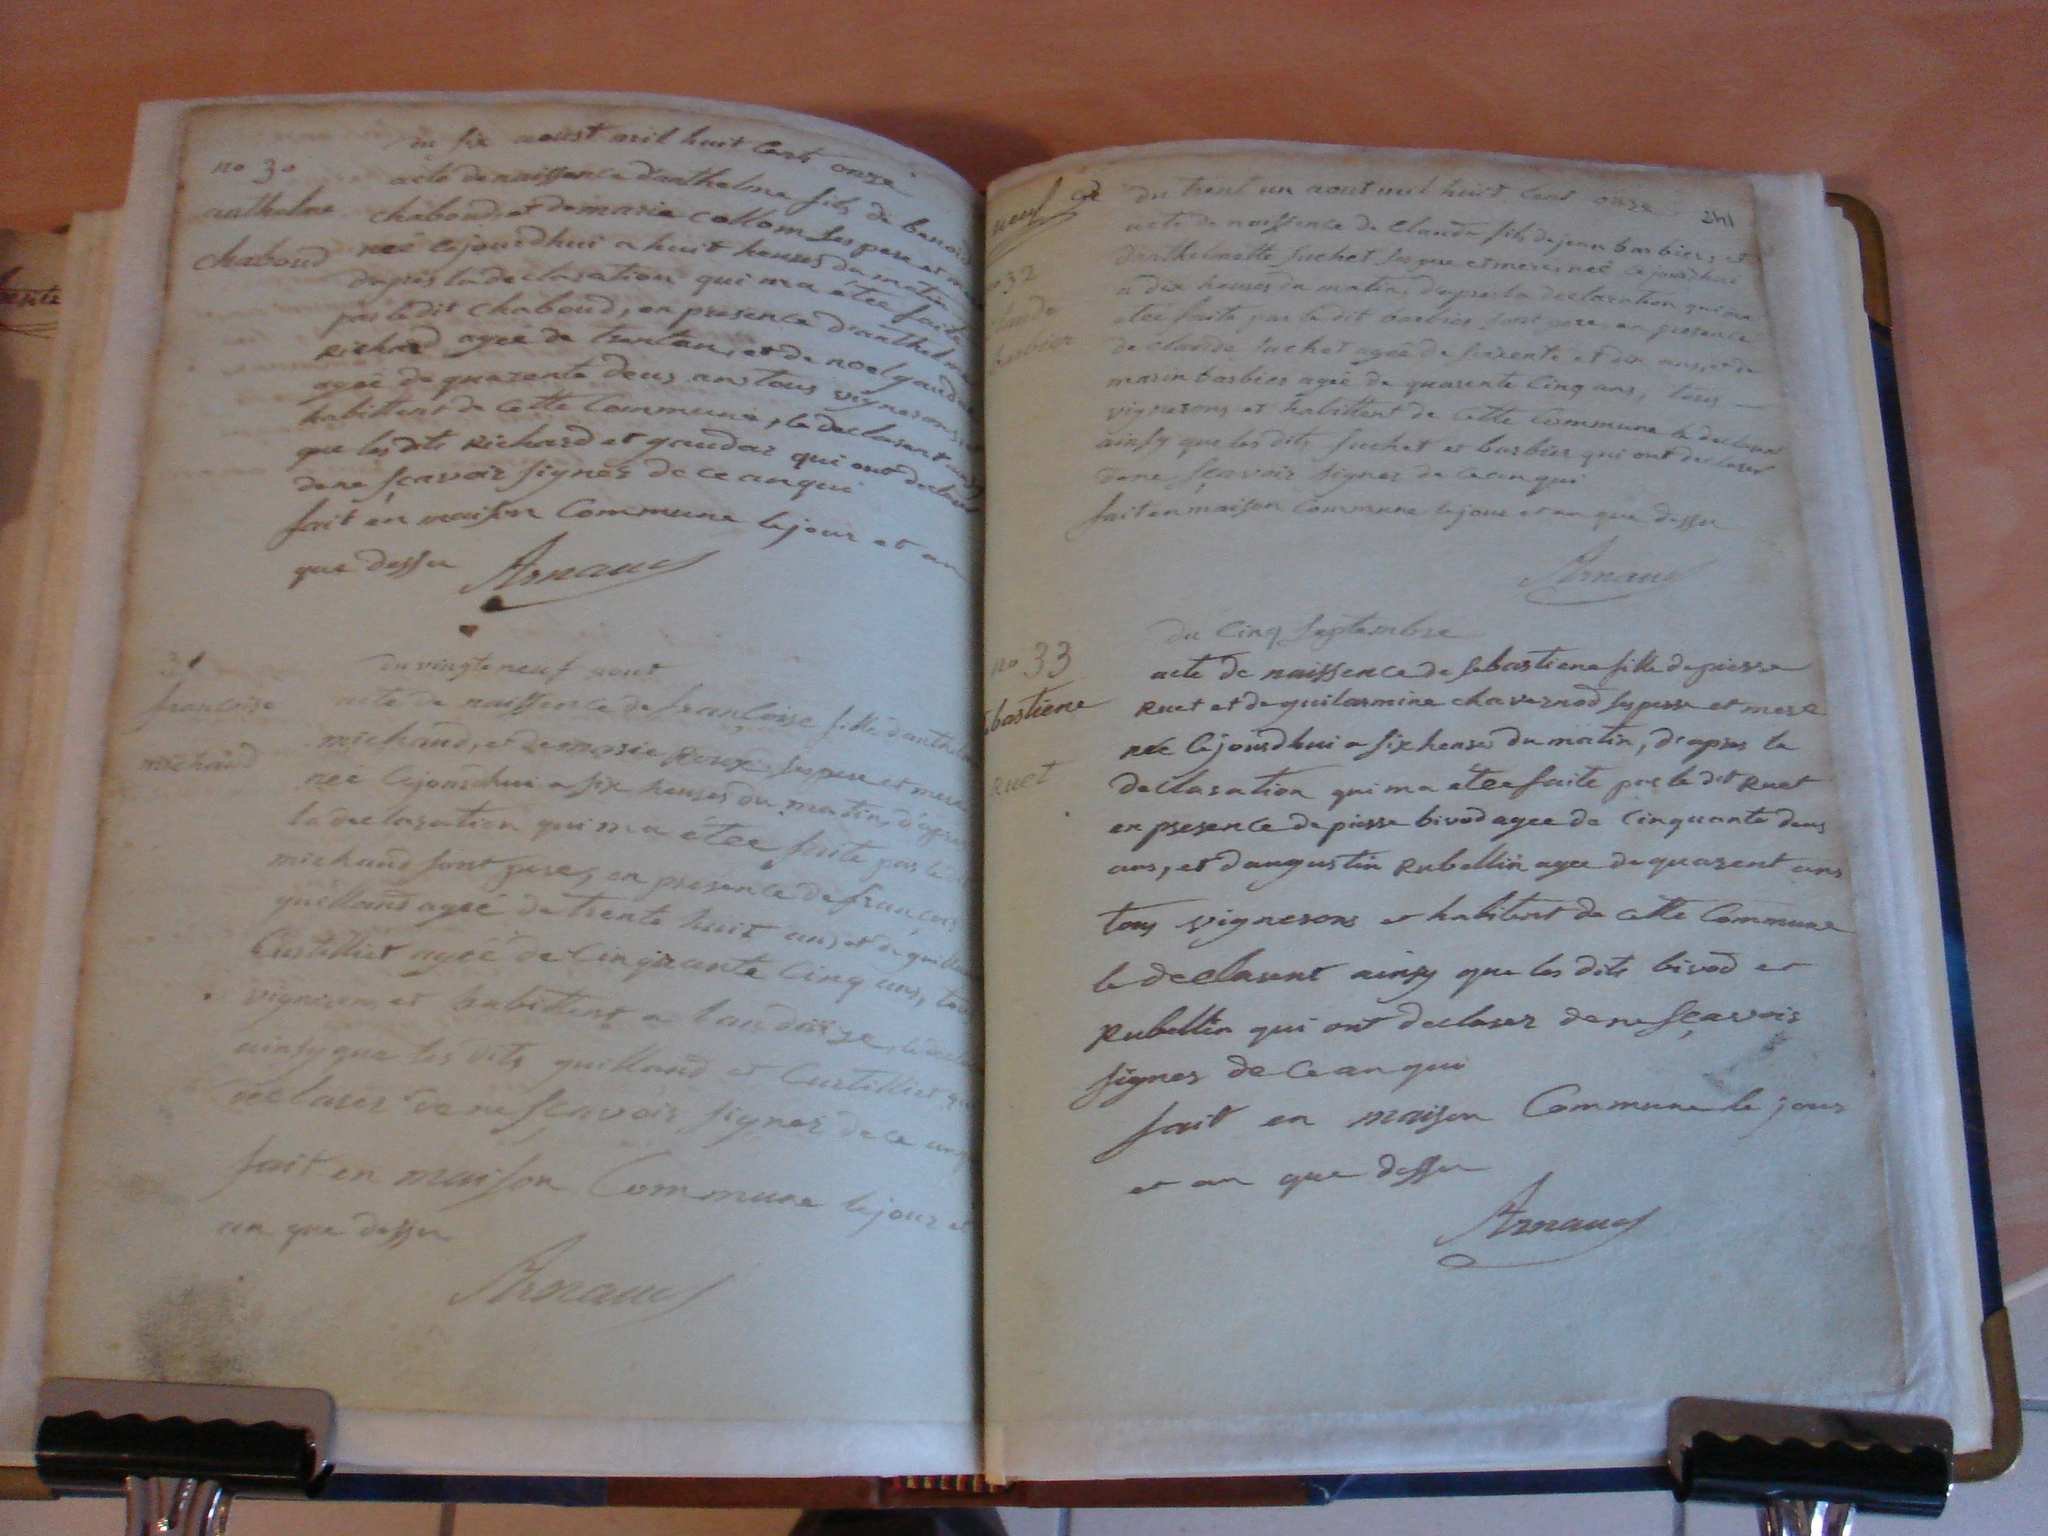 du six aoust mil huit Cents onze
no 30
acte de naissance danthelme fils de benoit
anthelme
chaboud, et de marie collom ses pere et
chaboud
neé cejourdhui a huit heures du matin
dapres la declaration qui ma étee faite
par ledit chaboud, en presence d'anthelme
Richard ageé de trente ans, et de noel gaudar
ageé de quarente deus ans tous vignerons
habittent de Cette Commune, le declarent
que les dits Richard et gaudar qui ont declarer
de ne sçavoir signer de ce anqui
fait en maison Commune lejour et an
que dessu
Arnaud
31
du vingte neuf aout
francoise
acte de naissence de francoise fille danthelme
michaud
michaud, et de marie Roux ses pere et mere
neé cejourdhui a six heuses du matin, d'apres
la declaration qui ma étee faite par ledit
michaud sont pere, en presence de françois
guilland ageé de trente huit ans et de
Curtilliet ageé de Cinquante Cinq ans, tous
vignerons et habittent a
ainsy que les dits guilland et Curtilliet qui
declarer de ne sçavoir signer de ce anqui
fait en maison Commune lejour et
an que dessu
Arnaud
neuf
du trent un aout mil huit Cent onze
241
acte de naissence de Claude fils de jean barbier, et
no 32
danthelmette suchet ses pere et mere neé cejourdhui
a dix heuses du matin, dapres la declaration qui ma
Claude
etée faite par le dit barbier sont pere en presence
barbier
de Claude suchet ageé de soixente et dix ans, et de
marin barbier ageé de quarente Cinq ans, tous
vignerons et habittent de Cette Commune le declarent
ainsy que les dits suchet et barbier qui ont declarer
de ne sçavoir signer de Ceanqui
fait en maison Commune lejour et an que dessu
Arnaud
du Cinq septembre
no 33
acte de naissence de sebastiene fille de pierre
sebastiene
Ruet et de guilarmine chavernod ses pere et mere
neé Cejourdhui a six heuses du matin, d'apres la
Ruet
declaration qui ma etée faite par le dit Ruet
en presence de pierre bivod agee de Cinquante deus
ans, et d'augustin Rubellin agee de quarent ans
tous vignerons et habitent de Cette Commune
le declarent ainsy que les dits bivod et
Rubellin qui ont declarer de ne sçavoir
signer de Ce anqui
fait en maison Commune le jour
et an que dessu
Arnaud